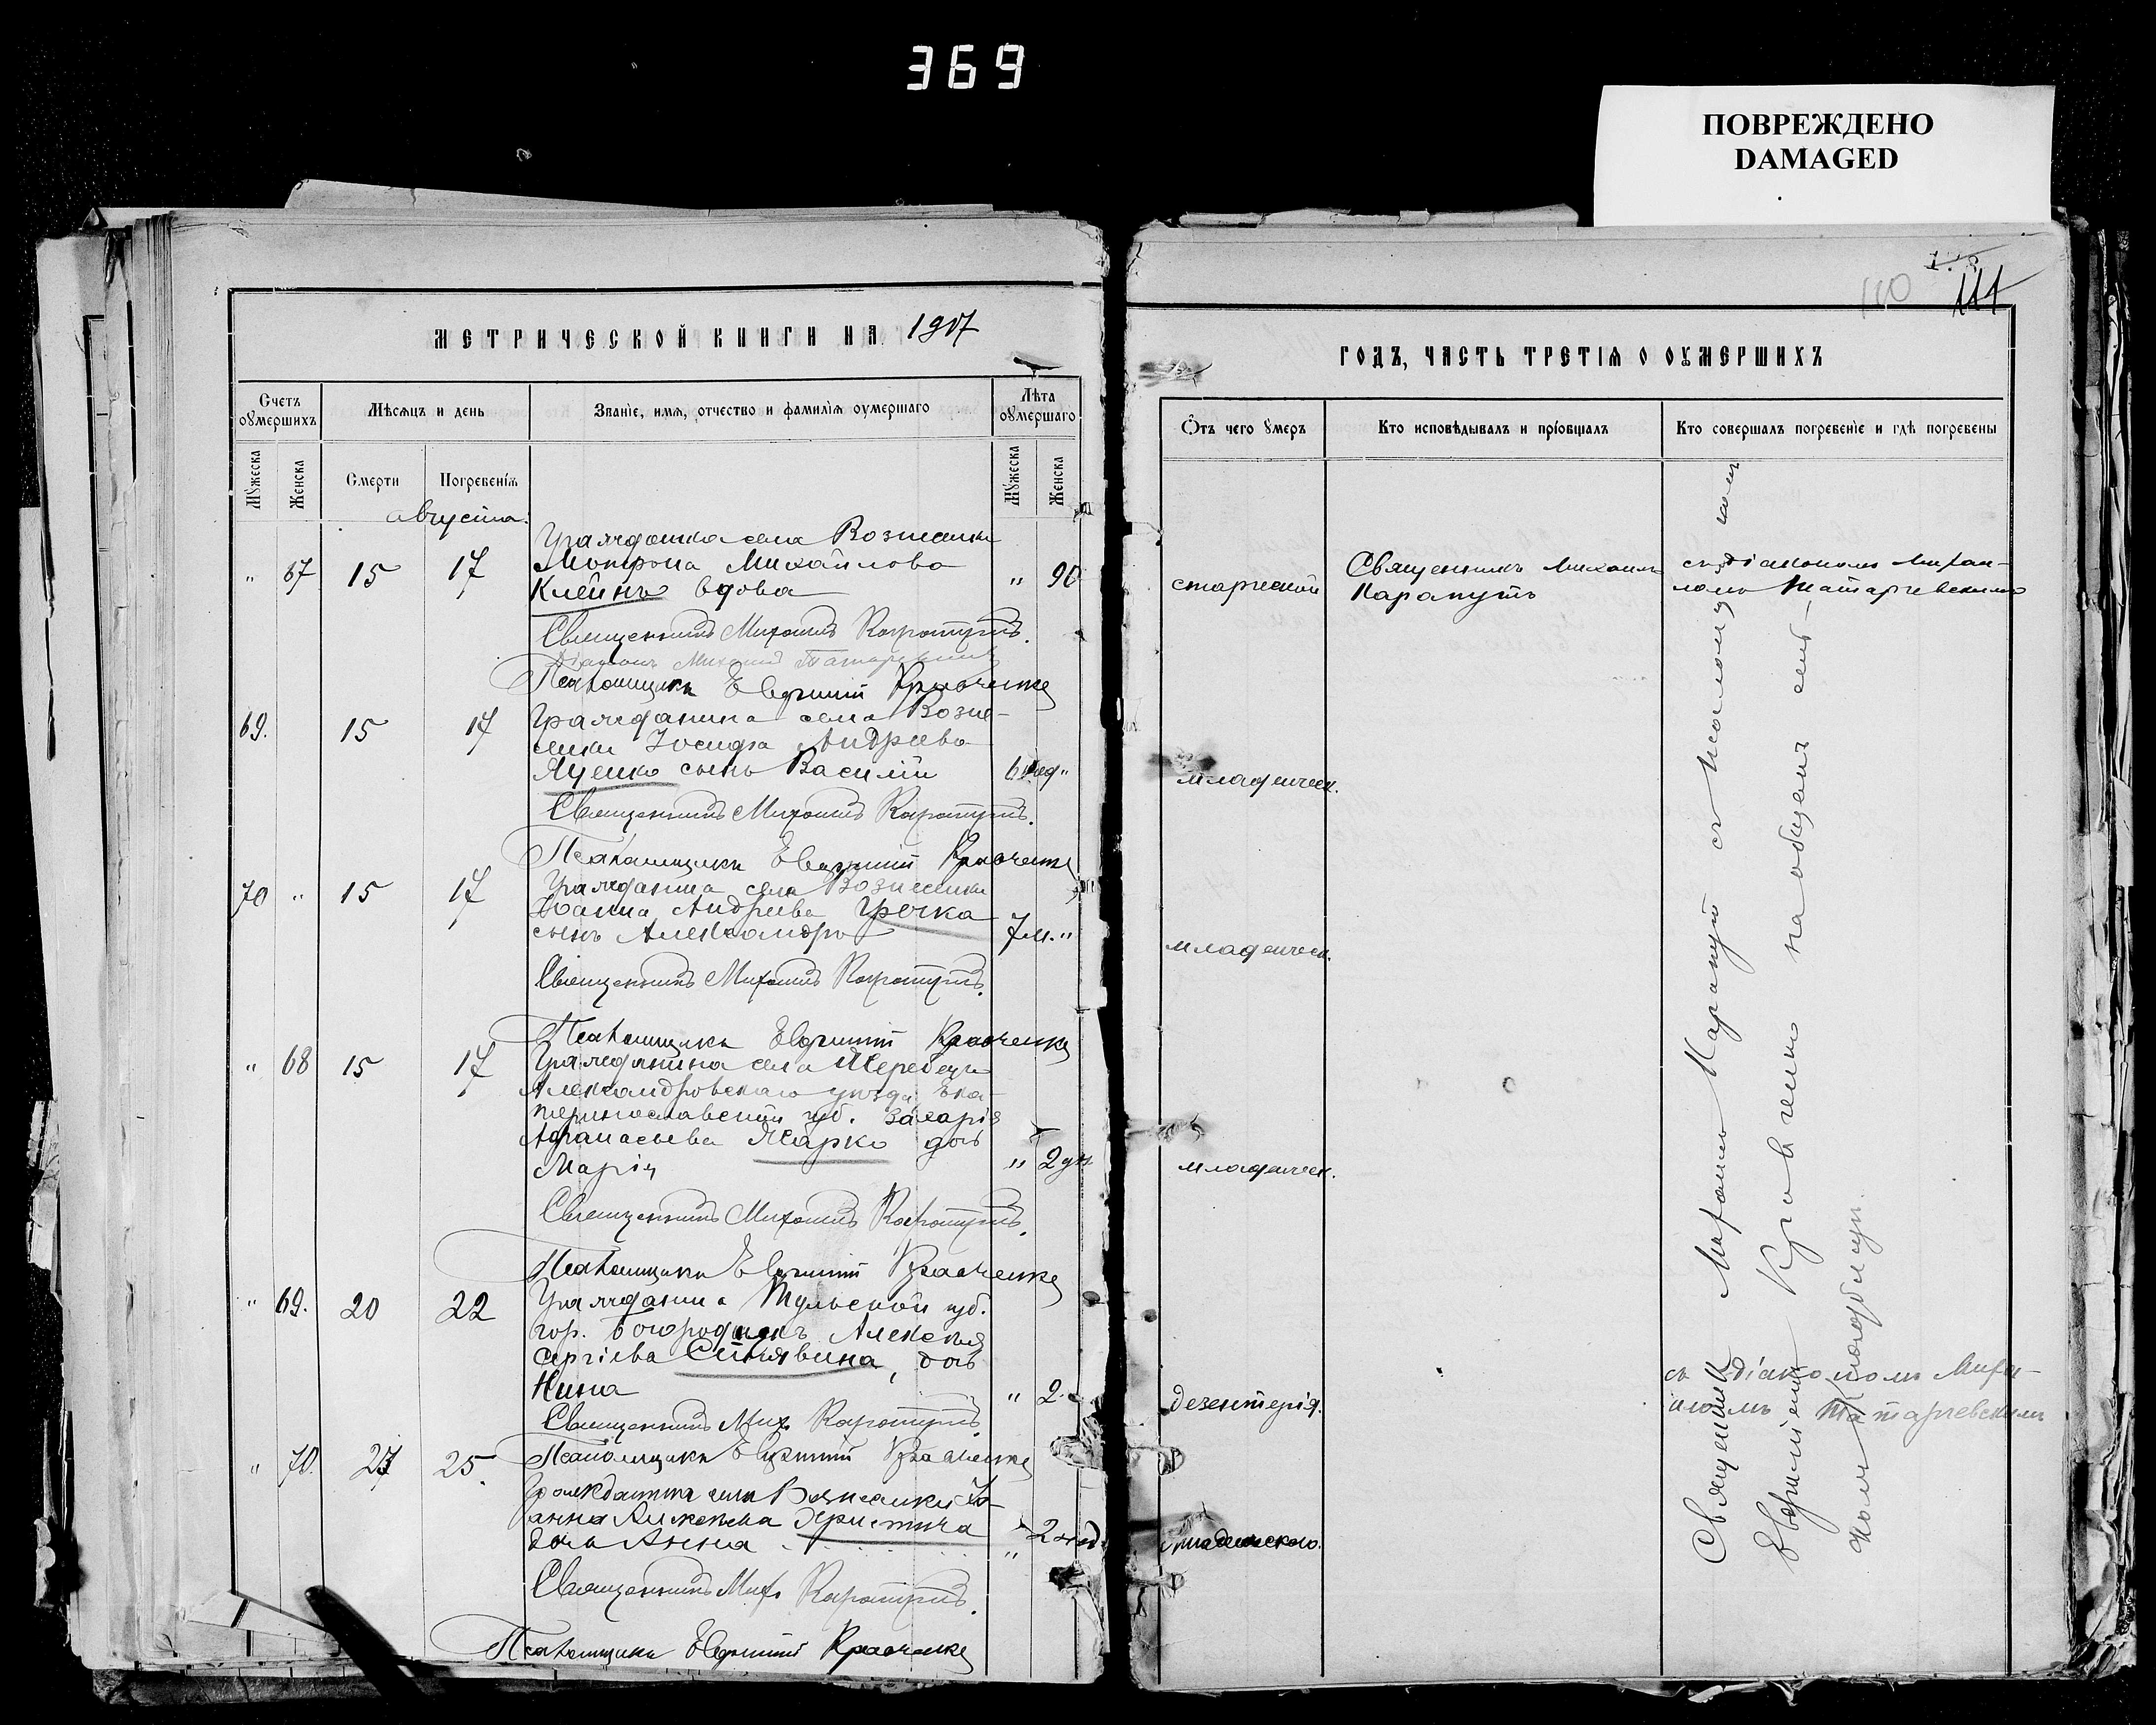 369
ПОВРЕЖДЕНО
DAMAGED
110 111
МЕТРИЧЕСКОЙ КНИГИ НА 1907
Счетъ оумершихъ
Мѣсяцъ и день
Званіе, имя, отчество и фамилія оумершаго
Лѣта оумершаго
Мужеска
Женска
Смерти
Погребенія
Мужеска
Женска
августа.
Гражданка села Вознесенки
Мотрона Михайлова
" 67 15 17 Клейнъ вдова " 90
Священникъ Михаилъ Карапутъ.
Діаконъ Михаилъ Татаревскій
Псаломщикъ Евфимій Кравченко
69. 15 17 Гражданина села Возне-
сенки Іосифа Андреева
Яценко сынъ Василій 6 нед "
Священникъ Михаилъ Карапутъ.
Псаломщикъ Евфимій Кравченко
70 " 15 17 Гражданина села Вознесенки
Іоанна Андреева Гречка
сынъ Александръ 7 м. "
Священникъ Михаилъ Карапутъ.
Псаломщикъ Евфимій Кравченко
" 68 15 17 Гражданина села Жеребца
Александровскаго уѣзда Ека-
теринославской губ. Захарія
Афанасьева Жарко дочь
Марія " 2 дн
Священникъ Михаилъ Карапутъ.
Псаломщикъ Евфимій Кравченко
" 69. 20 22 Гражданина Тульской губ.
гор. Богородицкъ Алексѣя
Сергіева Синявина, дочь
Нина " 2
Священникъ Мих. Карапутъ
Псаломщикъ Евфимій Кравченко
" 70. 23 25. Гражданина села Вознесенки Іо-
анна Алексѣева Христича
дочь Анна " 2 нед.
Священникъ Мих. Карапутъ.
Псаломщикъ Евфимій Кравченко
ГОДЪ, ЧАСТЬ ТРЕТІЯ О ОУМЕРШИХЪ
Отъ чего умеръ
Кто исповѣдывалъ и пріобщалъ
Кто совершалъ погребеніе и гдѣ погребены
старческой
Священникъ Михаилъ
Карапутъ
съ діакономъ Михаи-
ломъ Татарчевскимъ
младенческ.
младенческ.
младенческ.
дезентерія.
съ діакономъ Миха-
иломъ Татарчевскимъ
младенческаго.
Священникъ Михаилъ Карапутъ съ псаломщикомъ
Евфиміемъ Кравченко на общемъ сель-
скомъ кладбищѣ.